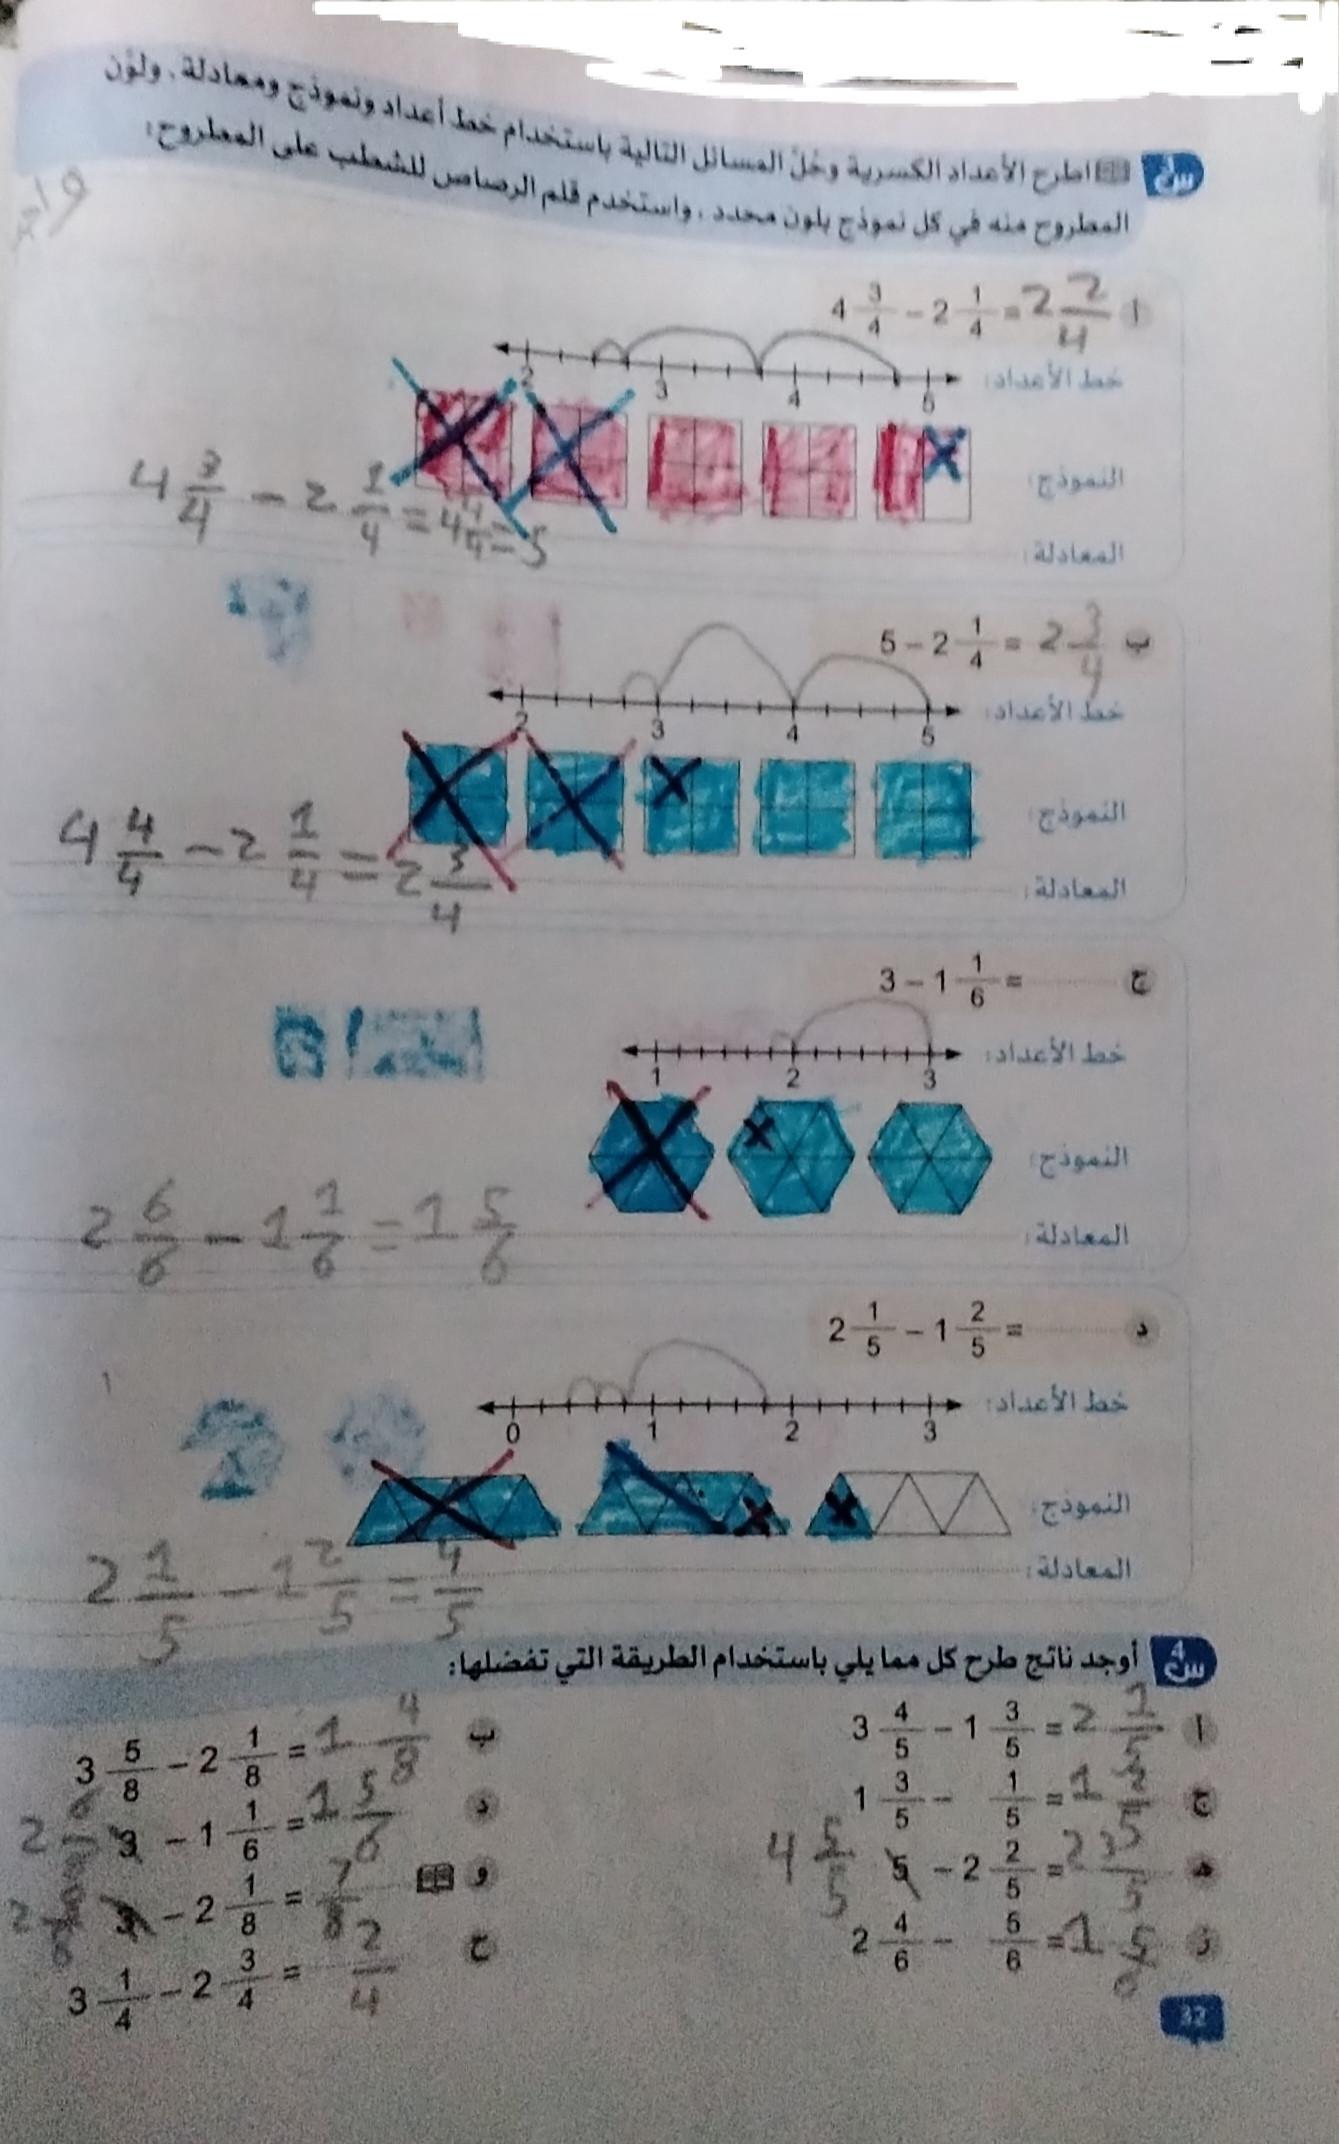 س3 اطرح الأعداد الكسرية وحُلّ المسائل التالية باستخدام خط أعداد ونموذج ومعادلة، ولوِّن
المطروح منه في كل نموذج بلون محدد، واستخدم قلم الرصاص للشطب على المطروح:
أ 4 3/4 − 2 1/4 = 2 2/4
خط الأعداد:
2 3 4 5
النموذج:
المعادلة: 4 3/4 − 2 1/4 = 4 4/4 = 5
ب 5 − 2 1/4 = 2 3/4
خط الأعداد:
2 3 4 5
النموذج:
المعادلة: 4 4/4 − 2 1/4 = 2 3/4
ج 3 − 1 1/6 =
خط الأعداد:
1 2 3
النموذج:
المعادلة: 2 6/6 − 1 1/6 = 1 5/6
د 2 1/5 − 1 2/5 =
خط الأعداد:
0 1 2 3
النموذج:
المعادلة: 2 1/5 − 1 2/5 = 4/5
س4 أوجد ناتج طرح كل مما يلي باستخدام الطريقة التي تفضلها:
أ 3 4/5 − 1 3/5 = 2 1/5
ب 3 5/8 − 2 1/8 = 1 4/8
ج 1 3/5 − 1/5 = 1 2/5
د 3 − 1 1/6 = 1 5/6
هـ 4 5/5 5 − 2 2/5 = 2 3/5
و 3 − 2 1/8 = 7/8
ز 2 4/6 − 5/6 = 1 5/6
ح 3 1/4 − 2 3/4 = 2/4
32